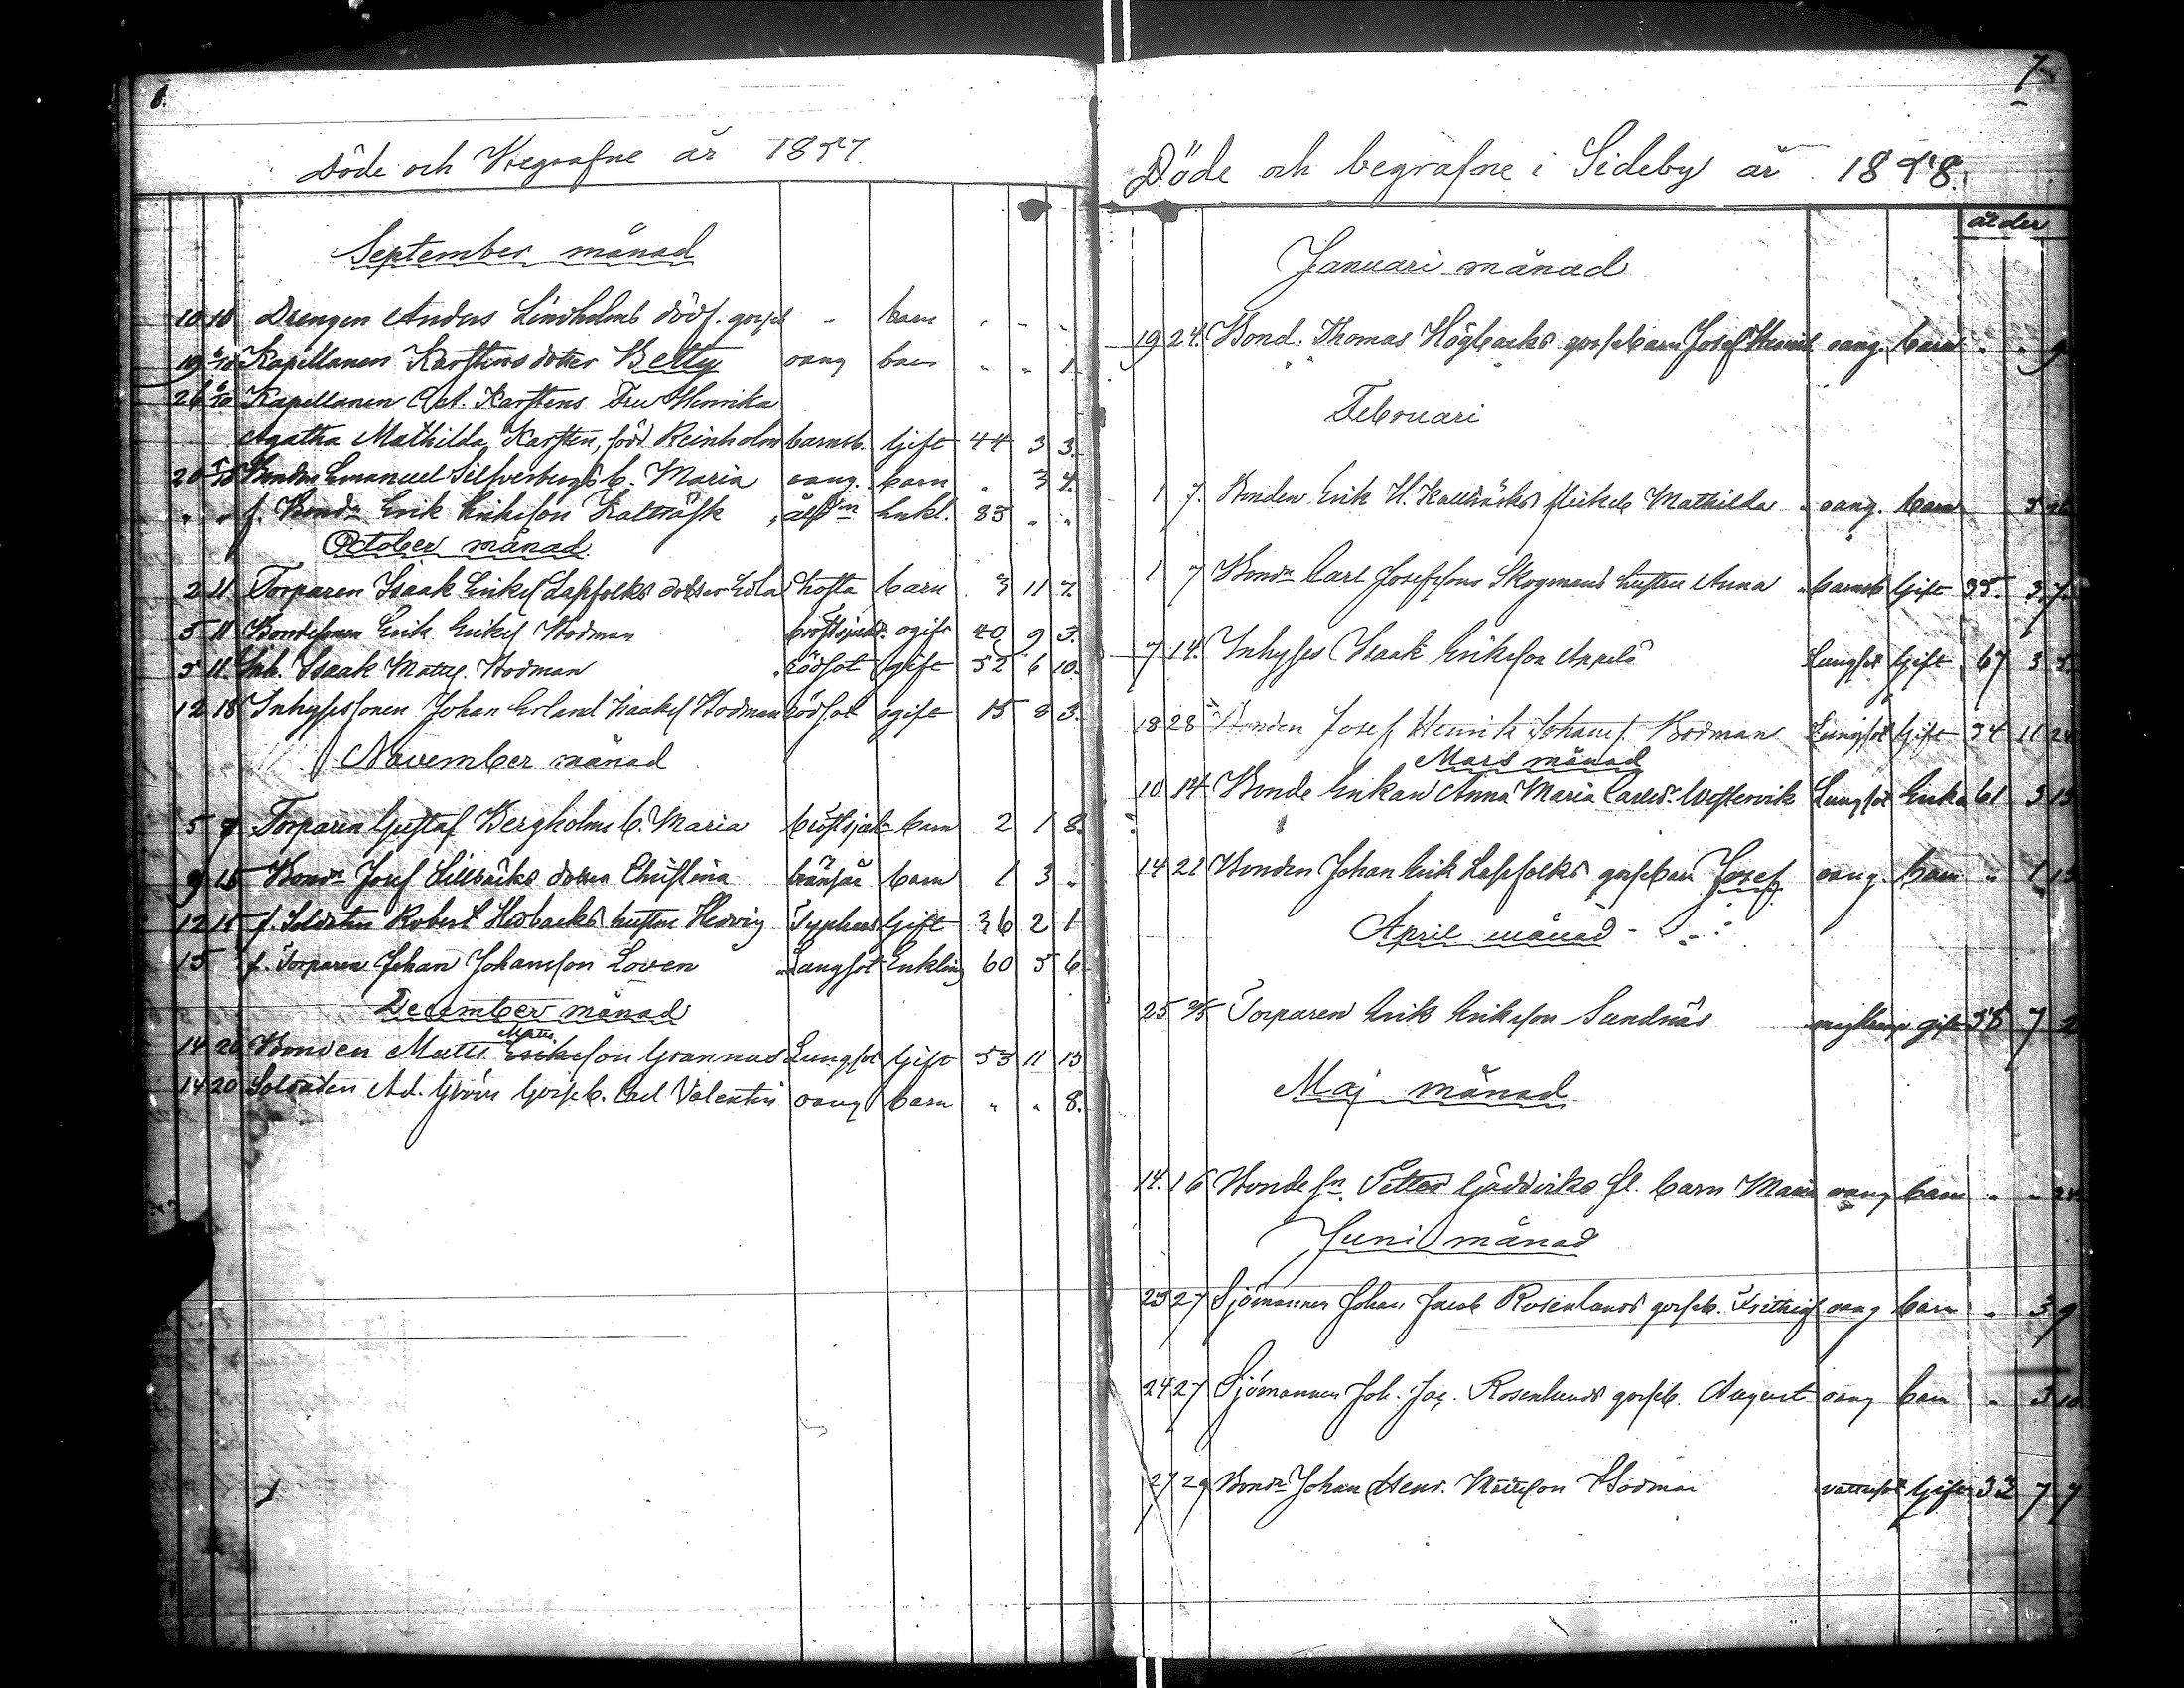 6.
Döde och Begrafne år 1877.
September månad
10 10 Drengen Anders Lindholms dödf. gosse " barn " " "
19 6/10 Kapellanen Karstens dotter Betty oang barn " " 1.
26 6/10 Kapellanen Karstens Fru Henrika
Agatha Mathilda Karsten, född Reinholm barnsb. Gift 44 3 3.
20 Bonden Emanuel Silfverbergs b. Maria oang. barn " 3 4.
" " f. Bondn Erik Erikson Kallträsk ålderdm Enkl. 85 " "
October månad.
2 11 Torparen Isaak Eriks. Lappfolks dotter Edla hosta barn 3 11 7.
5 11 Bondesonen Erik Eriks. Hodman bröstsjukd. ogift 40 9 3.
5 11. Inh. Isaak Matts. Hodman rödsot gift 52 6 10.
12 18 Inhyses sonen Johan Erland Isaaks. Hodman rödsot ogift 15 8 3.
November månad
5 9 Torparen Gustaf Bergholms b. Maria bröstsjuk barn 2 1 8.
9 15 Bondn Josef Lillträsks dotter Christina barn 1 3 "
12 15 f. Soldaten Robert Hedbacks hustru Hedvig Typhus Gift 36 2 1
15 f. Torparen Johan Johansson Loven Lungsot Enkling 60 5 6.
December månad
Matts.
14 20 Bonden Matts Erikson Grannas Lungsot Gift 53 11 13
14 20 Soldaten Ad. gosseb. Carl Valentin oang barn " " 8.
7.
Döde och begrafne i Sideby år 1878.
ålder
Januari månad
19 24. Bond. Thomas Högbacks gossebarn Josef Henrik oang. barn " " 9
Februari
1 7. Bonden Erik H. Kallträsks flickeb Mathilda oang. barn 5 26
1 7 Bondn Carl Josefssons Skogmans hustru Anna barnsb Gift 35. 3 7
7 14. Inhyses Isaak Erikson Lungsot Gift 67 3 5
18 28 Bonden Josef Henrik Johans. Hodman Lungsot Gift 34 11 24
Mars månad
10 14 Bonde Enkan Anna Maria Carlsd. Westervik Lungsot Enka 61 3 13
14 21 Bonden Johan Erik Lappfolks gossebarn Josef oang. barn " 1 13
April månad
25 2/5 Torparen Erik Erikson Sandnäs magkramp gift 38 7 2
Maj månad
14. 16 Bonde sn. Petter Gäddviks fl. barn Maria oang barn " " 24
Juni månad
23 27 Sjömannen Johan Jacob Rosenlunds gosseb. Frithiof oang barn " 3 9
24 27 Sjömannen Joh. Jac. Rosenlunds gosseb. August oang barn " 3 10
27 29 Bondn Johan Henr. Mattsson Hodman vattusot Gift 32 7 7